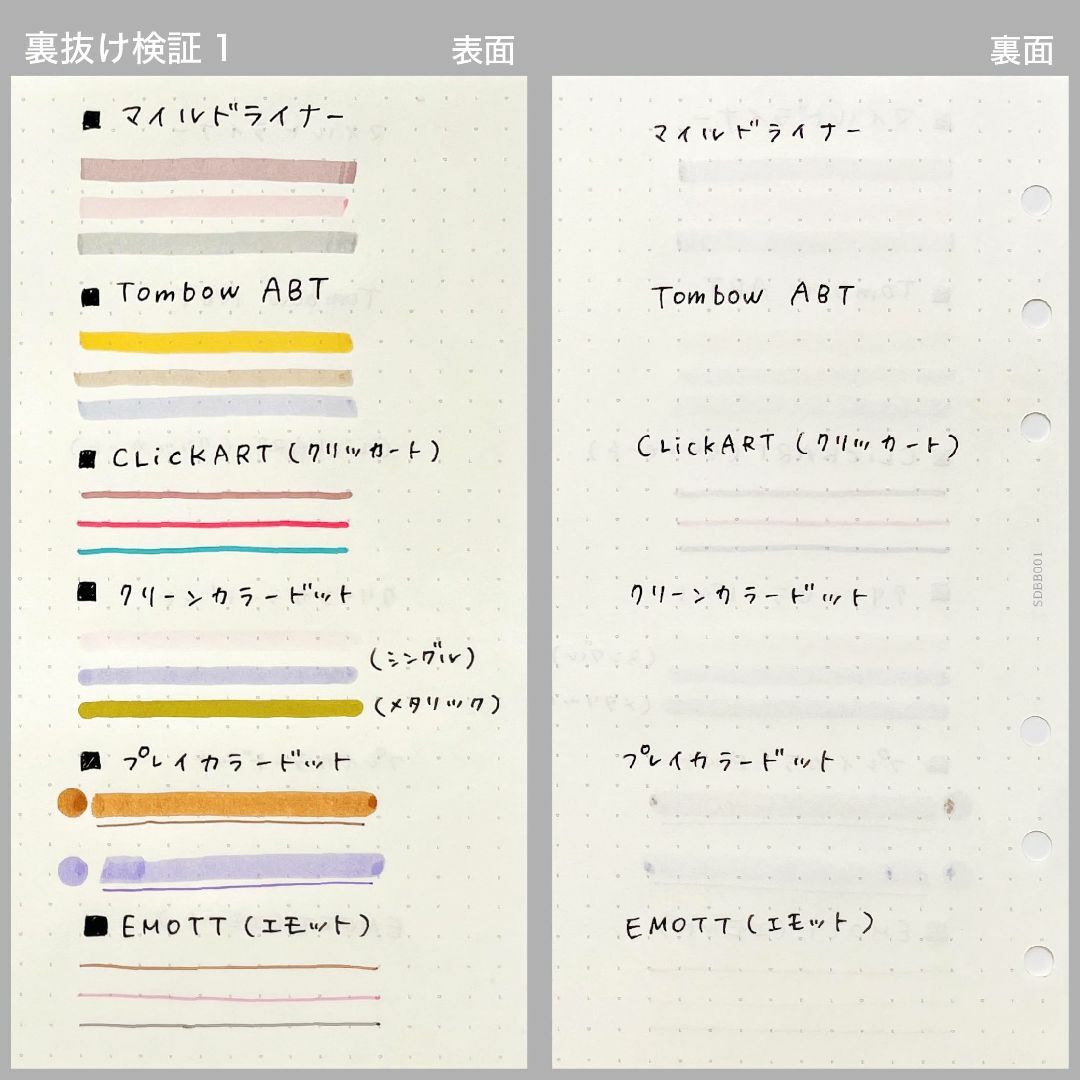 裏抜け検証1
表面
裏面
■ マイルドライナー
■ Tombow ABT
■ CLiCKART (クリッカート)
■ クリーンカラードット
(シングル)
(メタリック)
■ プレイカラードット
■ EMOTT (エモット)
マイルドライナー
Tombow ABT
CLiCKART (クリッカート)
クリーンカラードット
プレイカラードット
EMOTT (エモット)
SDBB001